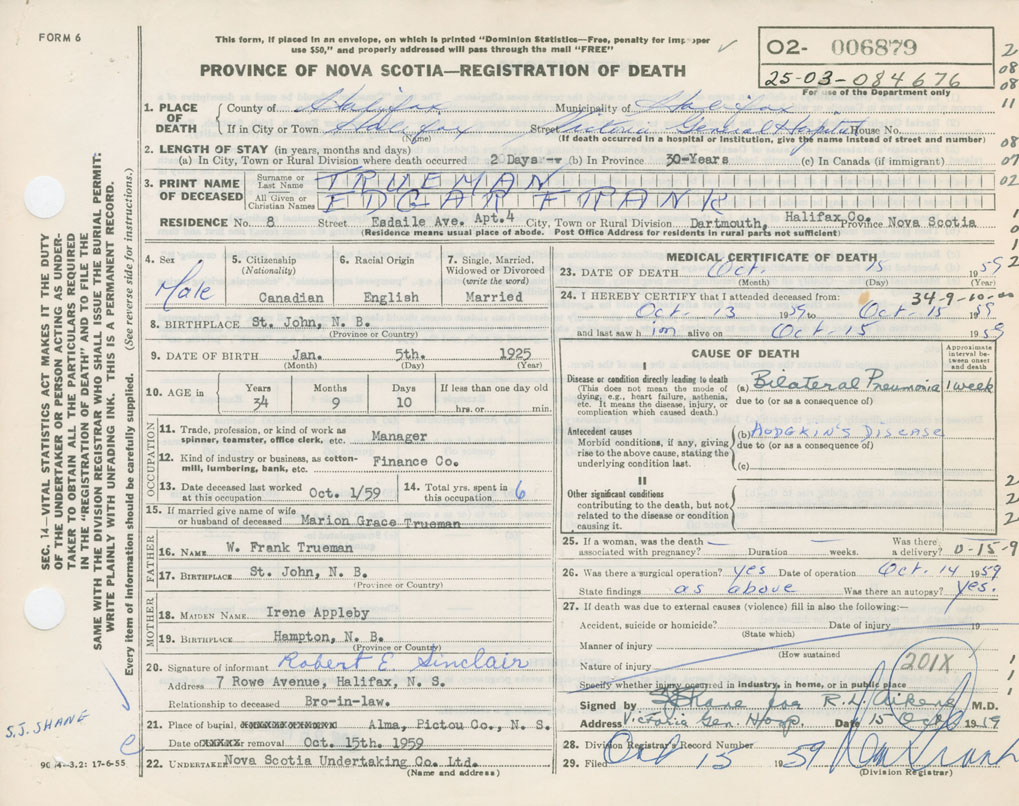 FORM 6
This form, if placed in an envelope, on which is printed "Dominion Statistics—Free, penalty for improper
use $50," and properly addressed will pass through the mail "FREE"
PROVINCE OF NOVA SCOTIA—REGISTRATION OF DEATH
02- 006879
25-03-084676
For use of the Department only
1. PLACE OF DEATH
County of Halifax Municipality of Halifax
If in City or Town Halifax Street Victoria General Hospital House No.
(Name) (If death occurred in a hospital or institution, give the name instead of street and number)
2. LENGTH OF STAY (in years, months and days)
(a) In City, Town or Rural Division where death occurred 2 Days (b) In Province 30-Years (c) In Canada (if immigrant)
3. PRINT NAME OF DECEASED
Surname or Last Name TRUEMAN
All Given or Christian Names EDGAR FRANK
RESIDENCE No. 8 Street Esdaile Ave. Apt.4 City, Town or Rural Division Dartmouth, Halifax Co. Province Nova Scotia
(Residence means usual place of abode. Post Office Address for residents in rural parts not sufficient)
4. Sex
Male
5. Citizenship
(Nationality)
Canadian
6. Racial Origin
English
7. Single, Married, Widowed or Divorced
(write the word)
Married
8. BIRTHPLACE St. John, N. B.
(Province or Country)
9. DATE OF BIRTH Jan. 5th. 1925
(Month) (Day) (Year)
10. AGE in
Years Months Days If less than one day old
34 9 10 hrs. or min.
OCCUPATION
11. Trade, profession, or kind of work as
spinner, teamster, office clerk, etc. Manager
12. Kind of industry or business, as cotton-
mill, lumbering, bank, etc. Finance Co.
13. Date deceased last worked
at this occupation Oct. 1/59
14. Total yrs. spent in
this occupation 6
15. If married give name of wife
or husband of deceased Marion Grace Trueman
FATHER
16. NAME W. Frank Trueman
17. BIRTHPLACE St. John, N. B.
(Province or Country)
MOTHER
18. MAIDEN NAME Irene Appleby
19. BIRTHPLACE Hampton, N. B.
(Province or Country)
20. Signature of informant Robert E. Sinclair
Address 7 Rowe Avenue, Halifax, N. S.
Relationship to deceased Bro-in-law.
21. Place of burial, Alma, Pictou Co., N. S.
Date of removal Oct. 15th. 1959
22. UNDERTAKER Nova Scotia Undertaking Co. Ltd.
(Name and address)
MEDICAL CERTIFICATE OF DEATH
23. DATE OF DEATH Oct. 15 1959
(Month) (Day) (Year)
24. I HEREBY CERTIFY that I attended deceased from: 34-9-10-00
Oct. 13 1959 to Oct. 15 1959
and last saw him alive on Oct. 15 1959
CAUSE OF DEATH
Approximate interval between onset and death
I
Disease or condition directly leading to death
(This does not mean the mode of
dying, e.g., heart failure, asthenia,
etc. It means the disease, injury, or
complication which caused death.)
(a) Bilateral Pneumonia 1 week
due to (or as a consequence of)
Antecedent causes
Morbid conditions, if any, giving
rise to the above cause, stating the
underlying condition last.
(b) HODGKIN'S DISEASE
due to (or as a consequence of)
(c)
II
Other significant conditions
contributing to the death, but not
related to the disease or condition
causing it.
25. If a woman, was the death
associated with pregnancy? Duration weeks.
Was there a delivery? 0-15-9
26. Was there a surgical operation? yes Date of operation Oct. 14 1959
State findings as above Was there an autopsy? yes.
27. If death was due to external causes (violence) fill in also the following:—
Accident, suicide or homicide? Date of injury 19
(State which)
Manner of injury
(How sustained
Nature of injury
201X
Specify whether injury occurred in industry, in home, or in public place
Signed by S. J. Shane for R. L. Aikens M.D.
Address Victoria Gen. Hosp. Date 15 Oct 1959
28. Division Registrar's Record Number
29. Filed Oct 15 1959
(Division Registrar)
SEC. 14—VITAL STATISTICS ACT MAKES IT THE DUTY
OF THE UNDERTAKER OR PERSON ACTING AS UNDER-
TAKER TO OBTAIN ALL THE PARTICULARS REQUIRED
IN THE "REGISTRATION OF DEATH" AND FILE THE
SAME WITH THE DIVISION REGISTRAR WHO SHALL ISSUE THE BURIAL PERMIT:
WRITE PLAINLY WITH UNFADING INK. THIS IS A PERMANENT RECORD.
Every item of information should be carefully supplied. (See reverse side for instructions.)
S.J. SHANE